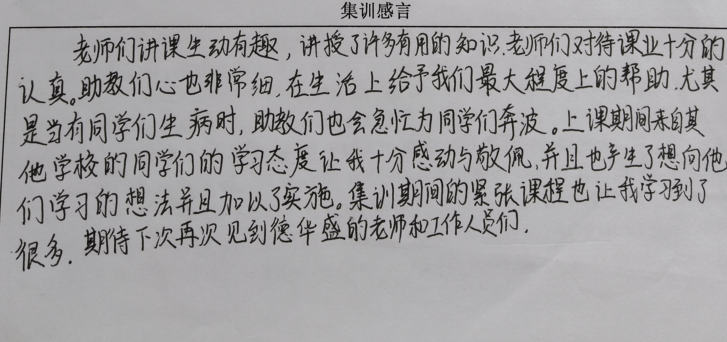 集训感言
老师们讲课生动有趣，讲授了许多有用的知识.老师们对待课业十分的
认真。助教们心也非常细.在生活上给予我们最大程度上的帮助.尤其
是当有同学们生病时,助教们也会急忙为同学们奔波。上课期间来自其
他学校的同学们的学习态度让我十分感动与敬佩.并且也产生了想向他
们学习的想法并且加以了实施。集训期间的紧张课程也让我学习到了
很多.期待下次再次见到德华盛的老师和工作人员们.